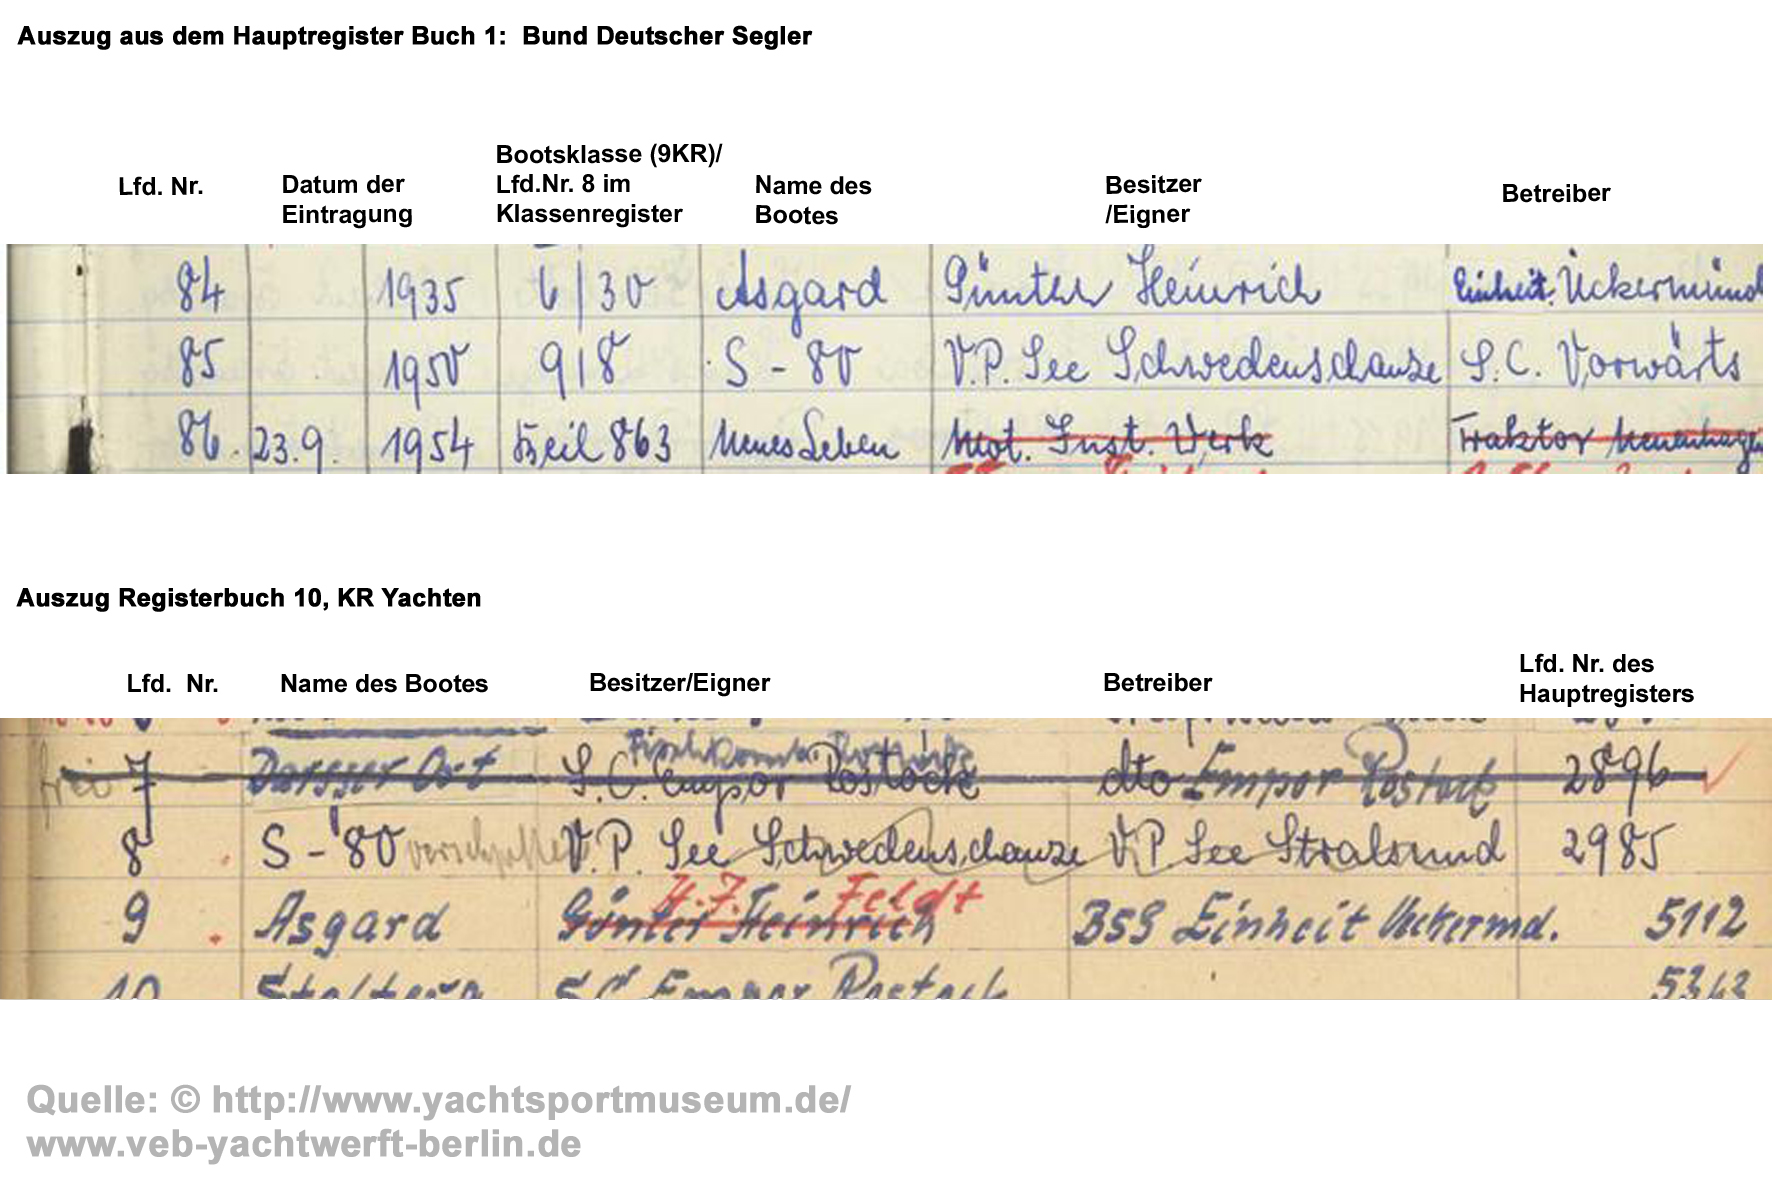 Auszug aus dem Hauptregister Buch 1: Bund Deutscher Segler
Bootsklasse (9KR)/
Lfd. Nr. Datum der Lfd.Nr. 8 im Name des Besitzer Betreiber
Eintragung Klassenregister Bootes /Eigner
84 1935 6/30 Asgard Günter Heinrich Einheit. Ückermünd
85 1950 9/8 S - 80 V.P. See Schwedenschanze S.C. Vorwärts
86. 23.9. 1954 863 Neues Leben Mot. Inst. Werk Traktor Neuenhagen
Auszug Registerbuch 10, KR Yachten
Lfd. Nr. Name des Bootes Besitzer/Eigner Betreiber Lfd. Nr. des
Hauptregisters
Rostock
frei 7 Darsser Ort S.C. Empor Rostock dto Empor Rostock 2896
8 S - 80 V.P. See Schwedenschanze V.P. See Stralsund 2985
H.J. Feldt
9 Asgard Günter Heinrich BSG Einheit Uckermd. 5112
10 S.C. Empor Rostock
Quelle: © http://www.yachtsportmuseum.de/
www.veb-yachtwerft-berlin.de